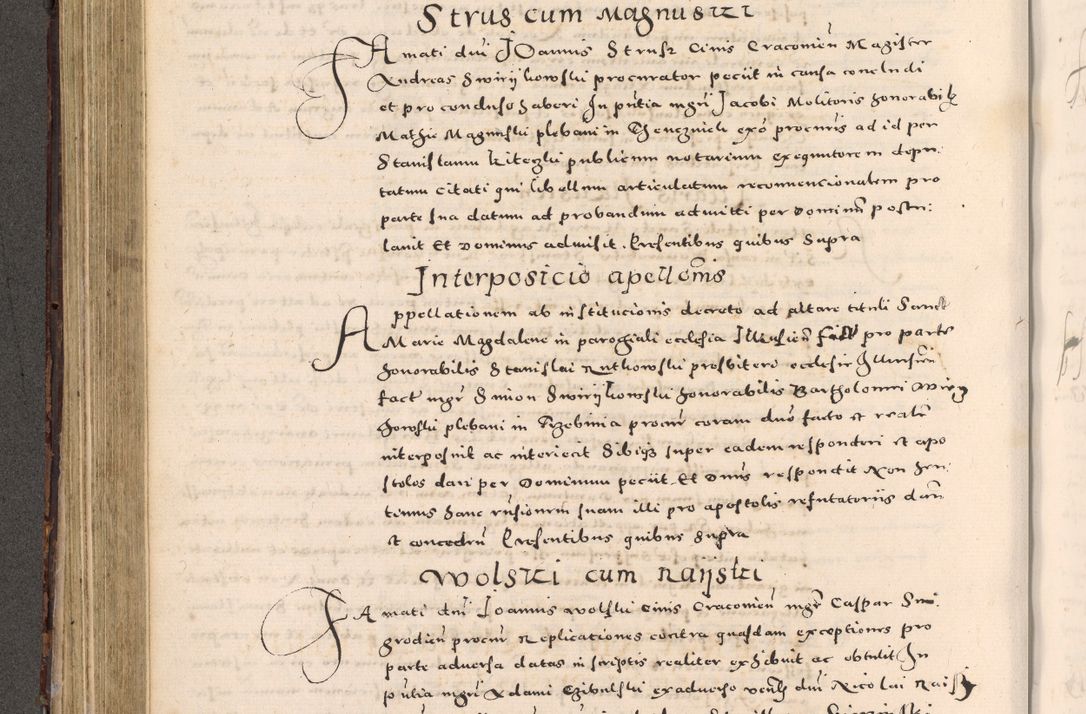 Strus cum Magnuski
Famati dni Joannis Strus Civis Cracovien Magister
Andreas Swirijkowski procurator peciit in causa concludi
et pro concluso haberi In pntia mgri Jacobi Molitoris honorabilis
Mathie Magnuski plebani in exo procuris ad id per
Stanislaum Kiteczki publicum notarium exequutorem depu:
tatum citati qui libellum articulatum reconvencionalem pro
parte sua datum ad probandum admitti per Dominum postu:
lavit Et Dominus admisit. Presentibus quibus supra
Interposicio apellonis
Appellationem ab institucionis decreto ad altare tituli Sancte
Marie Magdalene in parochiali ecclesia Ilkusien fact pro parte
honorabilis Stanislai Rutkowski presbiteri ecclesie Ilkusien
fact mgr Simon Swirijkowski honorabilis Bartholomei
howski plebani in Trzebinia procur coram dno facto et realr
interposuit ac interiecit Sibique super eadem responderi et apo
stolos dari per Dominum peciit Et Dnus respondit Non hen:
tenus hanc suam illi pro apostolis refutatoriis dan
et conceden Presentibus quibus supra
Wolski cum Raijski
Famati dni Joannis Wolski Civis Cracovien mgr Caspar Smi:
grodien procur Replicationes contra quasdam exceptiones pro
parte adversa datas in scriptis realiter exhibuit ac obtulit In
pntia mgri Adami Czibulski exadverso dni Nicolai Raisky